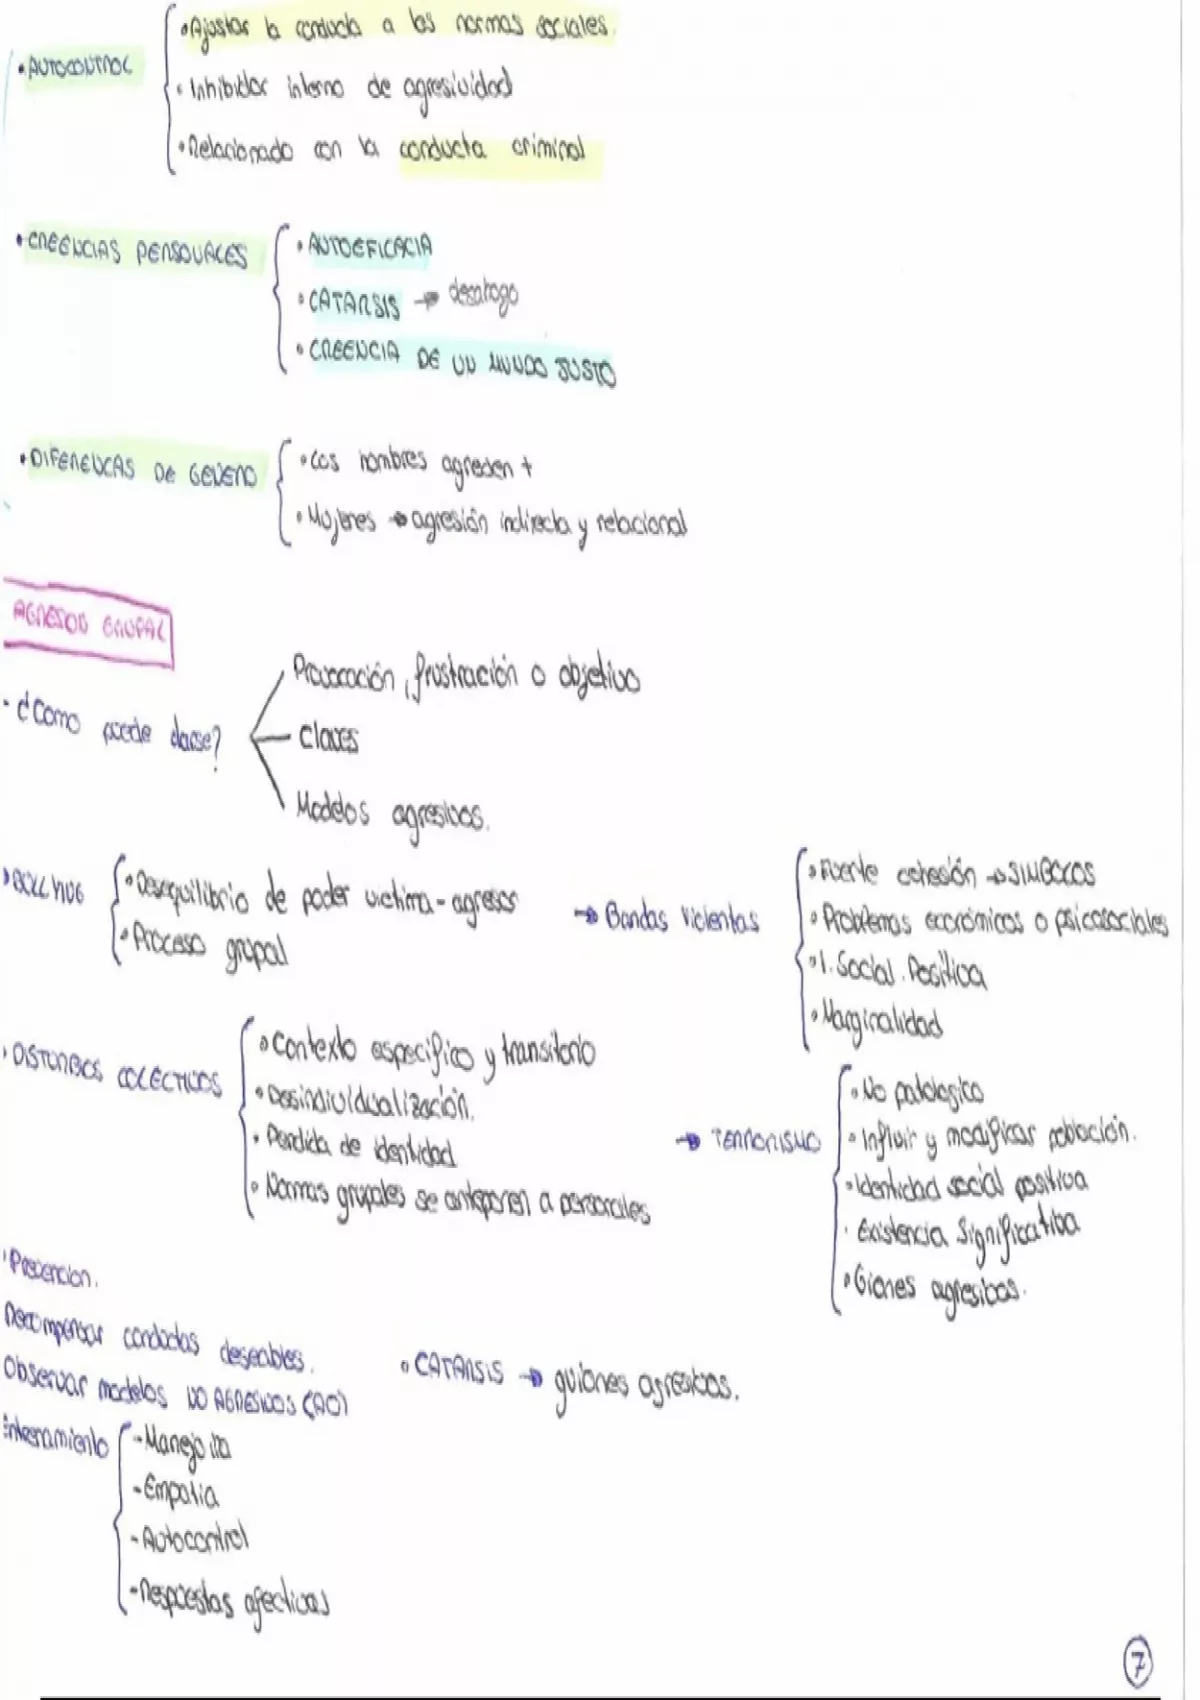 • AUTOCONTROL
• Ajustar la conducta a las normas sociales.
• Inhibidor interno de agresividad
• Relacionado con la conducta criminal
• CREENCIAS PERSONALES
• AUTOEFICACIA
• CATARSIS → desahogo
• CREENCIA DE UN MUNDO JUSTO
• DIFERENCAS DE GENERO
• Los hombres agreden +
• Mujeres → agresión indirecta y relacional
AGRESION GRUPAL
- ¿Como puede darse?
Provocación, frustración o objetivo
Claves
Modelos agresivos.
• BULLYING
• Desequilibrio de poder victima-agresor
• Proceso grupal
→ Bandas Violentas
• Fuerte cohesión → SIMBOLOS
• Problemas económicos o psicosociales
• I. Social. Positiva
• Marginalidad
• DISTURBIOS COLECTIVOS
• Contexto especifico y transitorio
• Desindividualización.
• Perdida de identidad
• Normas grupales se anteponen a personales
→ TERRORISMO
• No patologico
• Influir y modificar población.
• Identidad social positiva
• Existencia Significativa
• Giones agresibos.
• Prevencion.
Recompensar conductas deseables.
Observar modelos NO AGRESIVOS (AO)
Entrenamiento
- Manejo ira
- Empatia
- Autocontrol
- Respuestas afectivas
• CATARSIS → guiones agresibos.
7